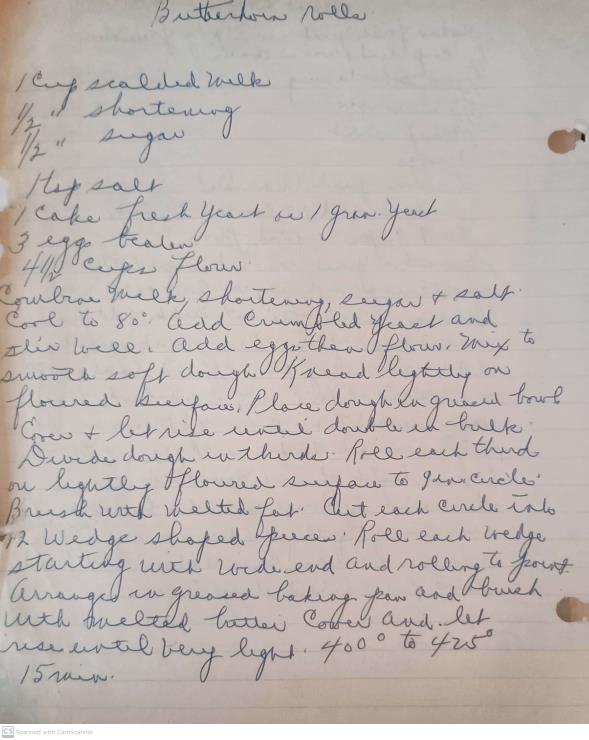 Butterhorn rolls
1 Cup scalded milk
1/2 " shortening
1/2 " sugar
1 tsp salt
1 Cake fresh yeast or 1 gran. Yeast
3 eggs beaten
4 1/2 cups flour.
Combine milk, shortening, sugar + salt.
Cool to 80°. Add Crumbled yeast and
stir well. Add eggs then flour. Mix to
smooth soft dough. Knead lightly on
floured surface. Place dough in greased bowl
Cover + let rise until double in bulk.
Divide dough in thirds. Roll each third
on lightly floured surface to 9 in. circle.
Brush with melted fat. Cut each circle into
12 Wedge shaped pieces. Roll each wedge
starting with wide end and rolling to point.
Arrange in greased baking pan and brush
with melted butter Cover and let
rise until very light. 400° to 425°
15 min.
CS Scanned with CamScanner